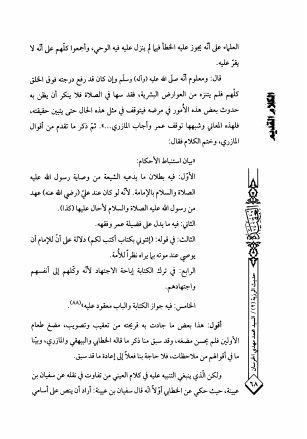 العلماء على أنّه يجوز عليه الخطأ فيما لم ينزل عليه فيه الوحي، وأجمعوا كلّهم على أنّه لا
يقرّ عليه.
قال: ومعلوم أنّه صلّى الله عليه (وآله) وسلّم وإن كان قد رفع درجته فوق الخلق
كلّهم فلم يتنزه من العوارض البشرية، فقد سها في الصلاة فلا ينكر أن يظن به
حدوث بعض هذه الأمور في مرضه فيتوقف في مثل هذه الحال حتى يتبين حقيقته،
فلهذه المعاني وشبهها توقف عمر وأجاب المازري...». ثمّ ذكر ما تقدم من أقوال
المازري، وختم الكلام فقال:
«بيان استنباط الأحكام:
الأوّل: فيه بطلان ما يدعيه الشيعة من وصاية رسول الله عليه
الصلاة والسلام بالإمامة. لأنّه لو كان عند عليّ (رضي الله عنه) عهد
من رسول الله عليه الصلاة والسلام لأحال عليها (كذا).
الثاني: فيه ما يدل على فضيلة عمر وفقهه.
الثالث: في قوله: (إئتوني بكتاب أكتب لكم) دلالة على أنّ للإمام أن
يوصي عند موته بما يراه نظراً للأمة.
الرابع: في ترك الكتابة إباحة الاجتهاد لأنّه وكلهم إلى أنفسهم
واجتهادهم.
الخامس: فيه جواز الكتابة والباب معقود عليه»(٨٨).
أقول: هذا بعض ما جادت به قريحته من تعقيب وتصويب، مضغ طعام
الأولين فلم يحسن مضغه، وقد سبق منا ذكر ما قاله الخطابي والبيهقي والمازري، وبيّنا
ما في أقوالهم من ملاحظات، فلا حاجة بنا فعلاً إلى إعادة ما قد سبق.
ولكن الّذي ينبغي التنبيه عليه في كلام العيني من تفاوت في نقله عن سفيان بن
عيينة، حيث حكي عن الخطابي أوّلاً أنّه قال سفيان بن عيينة: أراد أن ينص على أسامي
الكلام القديم
حديث الرزية (٢) / السيد محمد مهدي الخرسان
٦٨